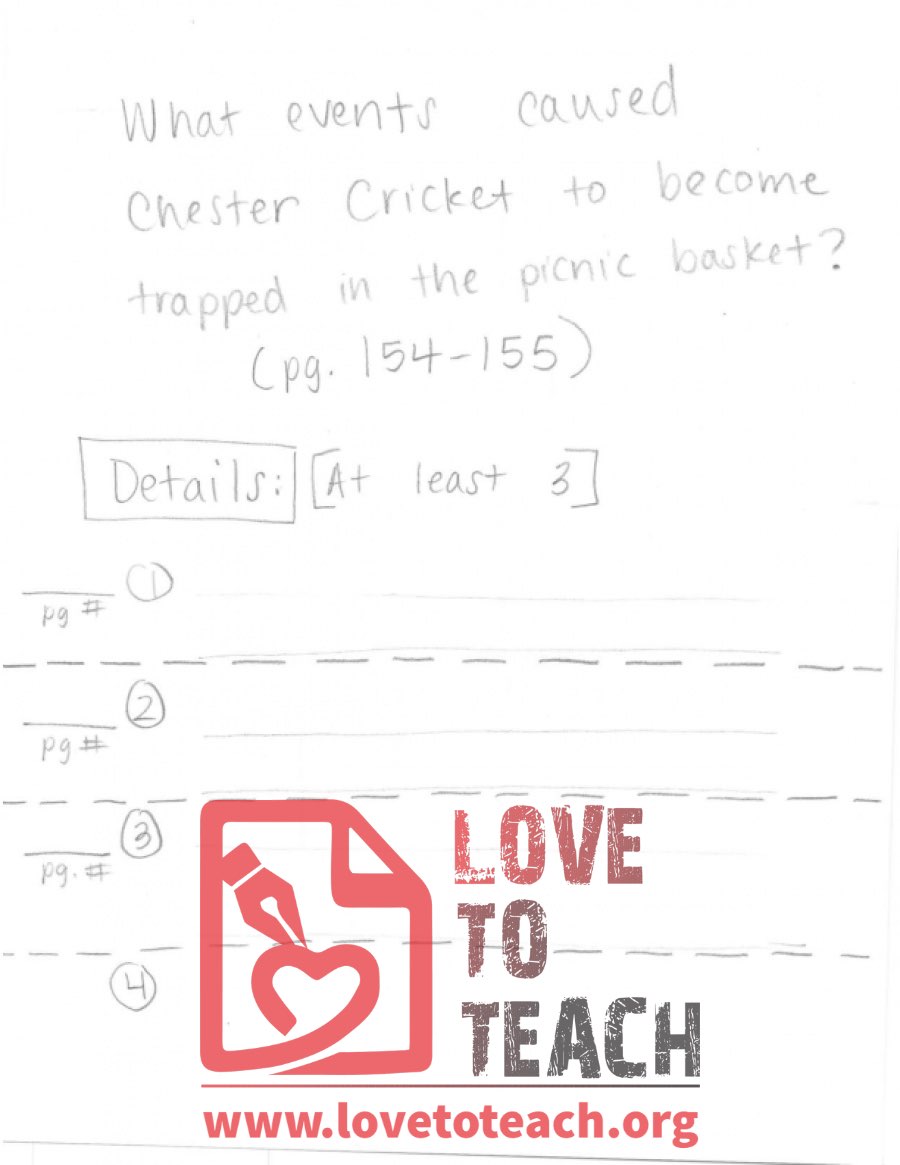 What events caused
Chester Cricket to become
trapped in the picnic basket?
(pg. 154-155)
Details: [At least 3]
1
pg #
2
pg #
3
pg. #
4
LOVE
TO
TEACH
www.lovetoteach.org